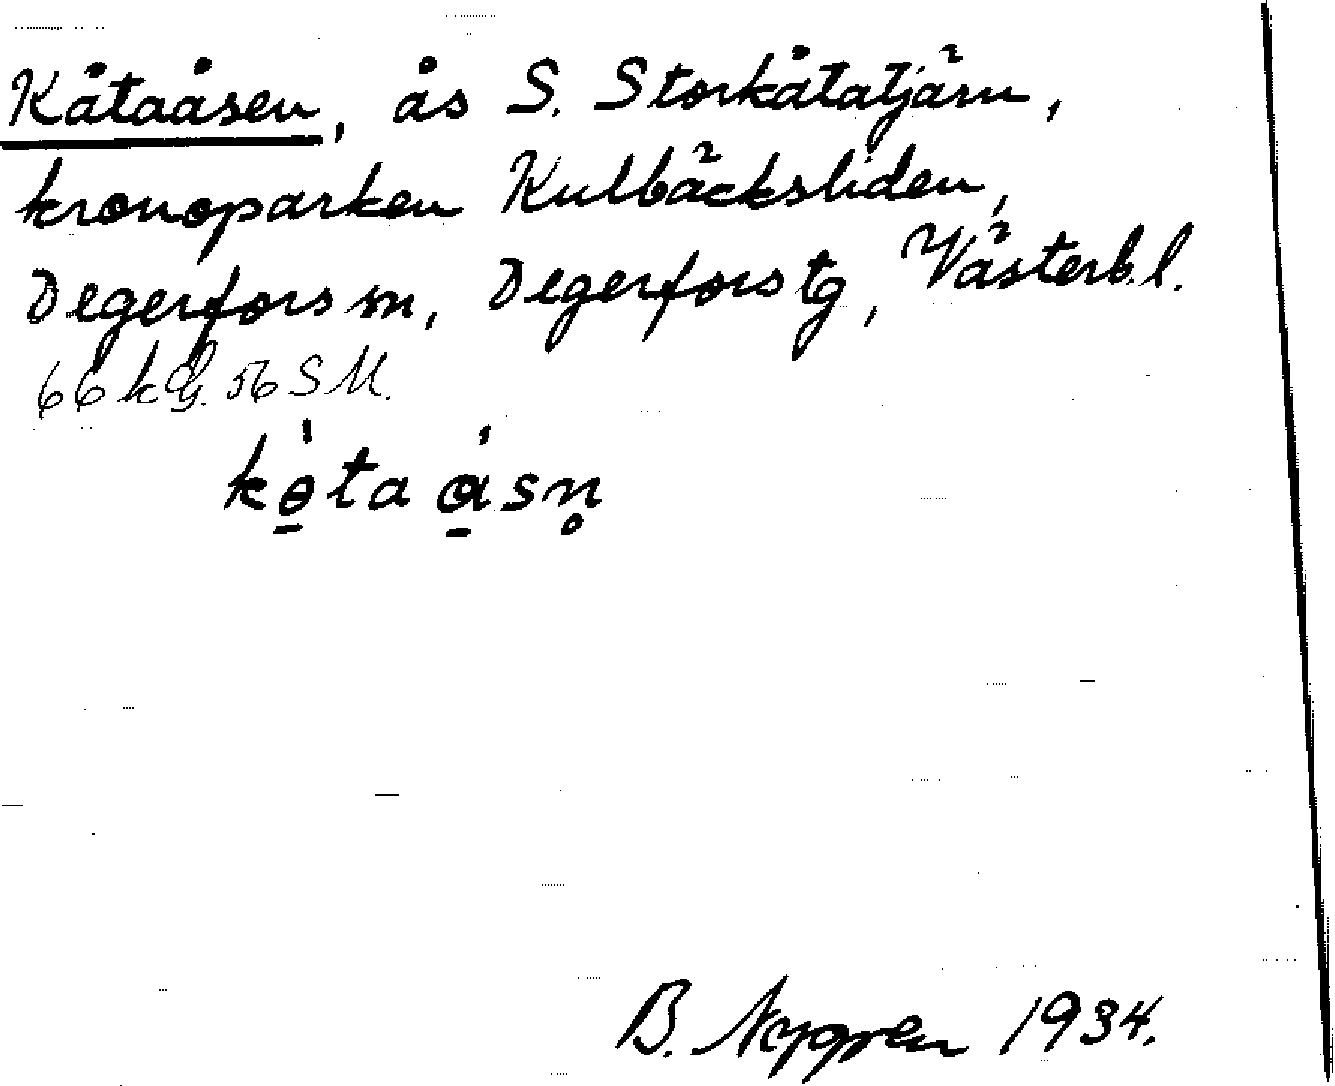 Kåtaåsen, ås S. Storkåtatjärn,
kronoparken Kulbäcksliden,
Degerfors sn, Degerfors tg, Västerb. l.
66 k G. 56 S M.
kɵ̱̀ta a̱̍sn̥
B. Nygren 1934.